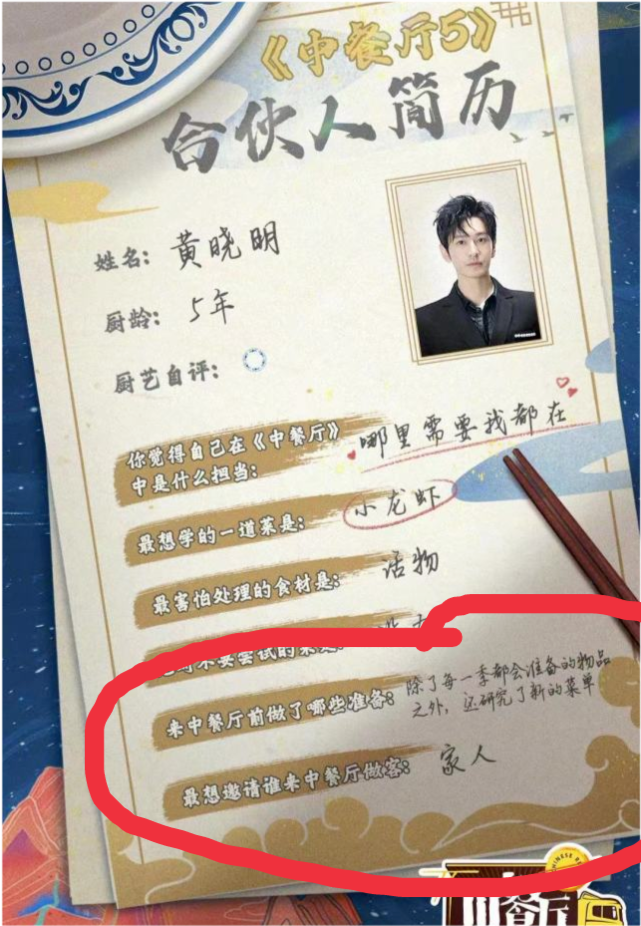 《中餐厅5》
合伙人简历
姓名: 黄晓明
厨龄: 5年
厨艺自评:
你觉得自己在《中餐厅》
中是什么担当:
哪里需要我都在
最想学的一道菜是: 小龙虾
最害怕处理的食材是: 活物
来中餐厅前做了哪些准备:
除了每一季都会准备的物品
之外,还研究了新的菜单
最想邀请谁来中餐厅做客: 家人
中餐厅